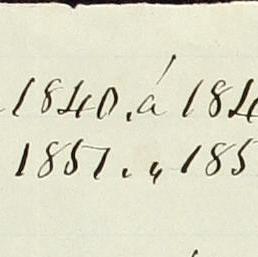 1840. á 184
1857. „ 185